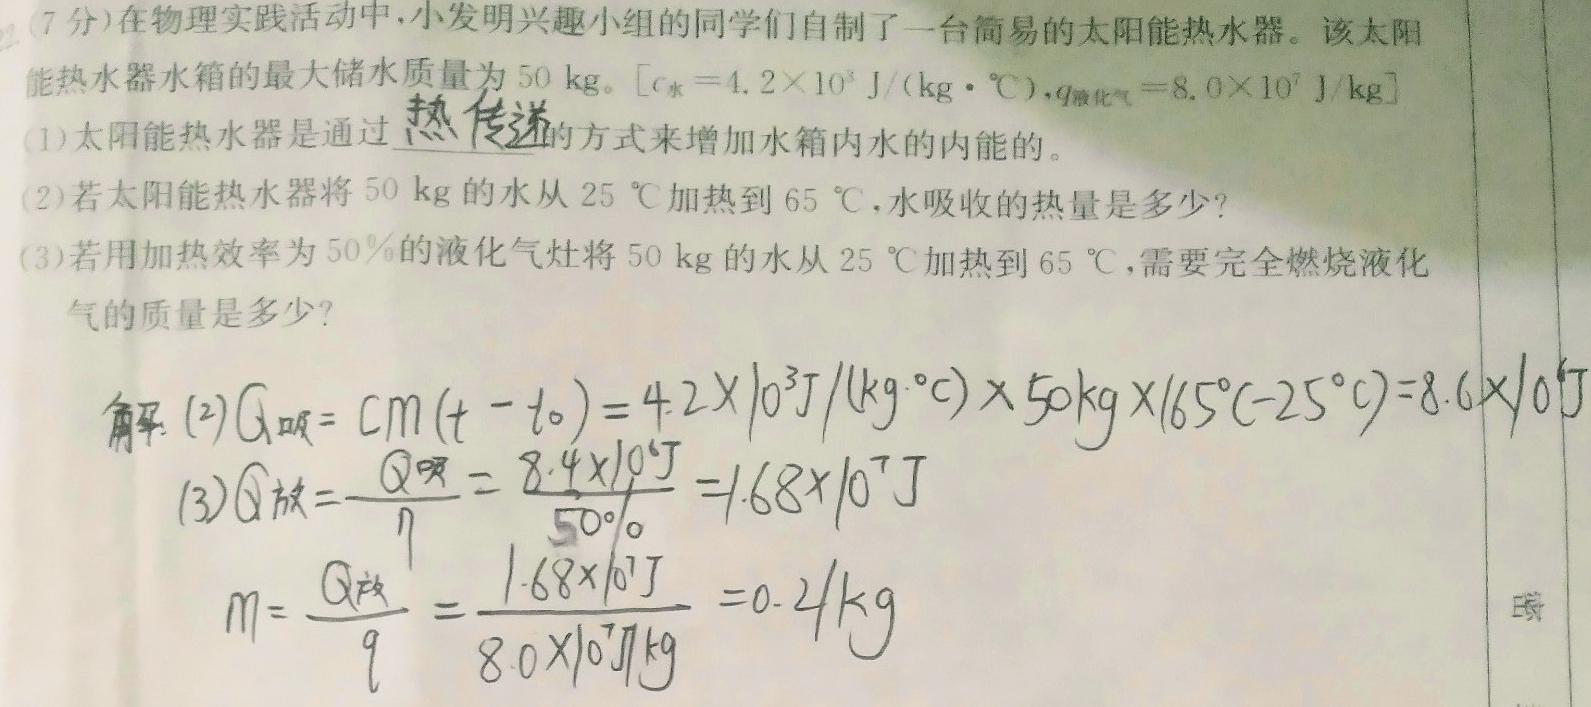 (7分)在物理实践活动中,小发明兴趣小组的同学们自制了一台简易的太阳能热水器。该太阳
能热水器水箱的最大储水质量为 50 kg。[c水=4.2×10³ J/(kg·℃),q液化气=8.0×10⁷ J/kg]
(1)太阳能热水器是通过热传递的方式来增加水箱内水的内能的。
(2)若太阳能热水器将 50 kg 的水从 25 ℃加热到 65 ℃,水吸收的热量是多少?
(3)若用加热效率为 50%的液化气灶将 50 kg 的水从 25 ℃加热到 65 ℃,需要完全燃烧液化
气的质量是多少?
解(2)Q吸=cm(t-t₀)=4.2×10³J/(kg·℃)×50kg×(65℃-25℃)=8.6×10⁶J
(3)Q放=Q吸/η=8.4×10⁶J/50%=1.68×10⁷J
m=Q放/q=1.68×10⁷J/8.0×10⁷J/kg=0.21kg